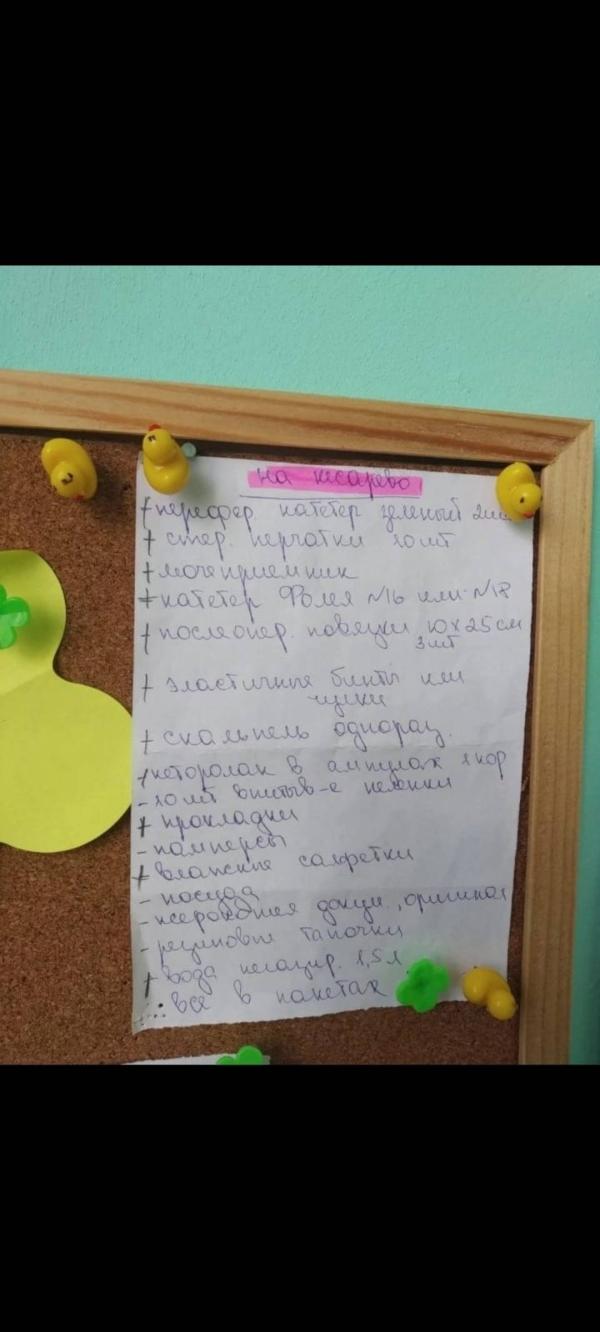 на кесарево
+ перефер. катетер зеленый 2шт
+ стер. перчатки 10 шт
+ мочеприемник
+ катетер Фолея №16 или №18
+ послеопер. повязки 10 х 25 см
3 шт
+ эластичные бинты или
чулки
+ скальпель однораз.
+ кеторолак в ампулах 1 кор
- 10 шт впитыв-е пеленки
+ прокладки
- памперсы
+ влажные салфетки
- посуда
- ксерокопия докум., оригинал
- резиновые тапочки
+ вода негазир. 1,5 л
все в пакетах